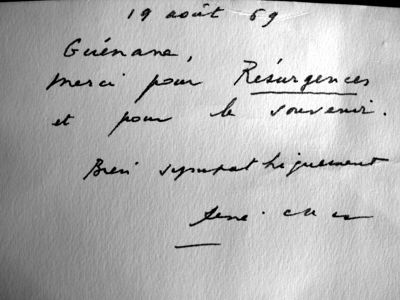 19 août 69
Guénane,
merci pour Résurgences
et pour le souvenir.
Bien sympathiquement